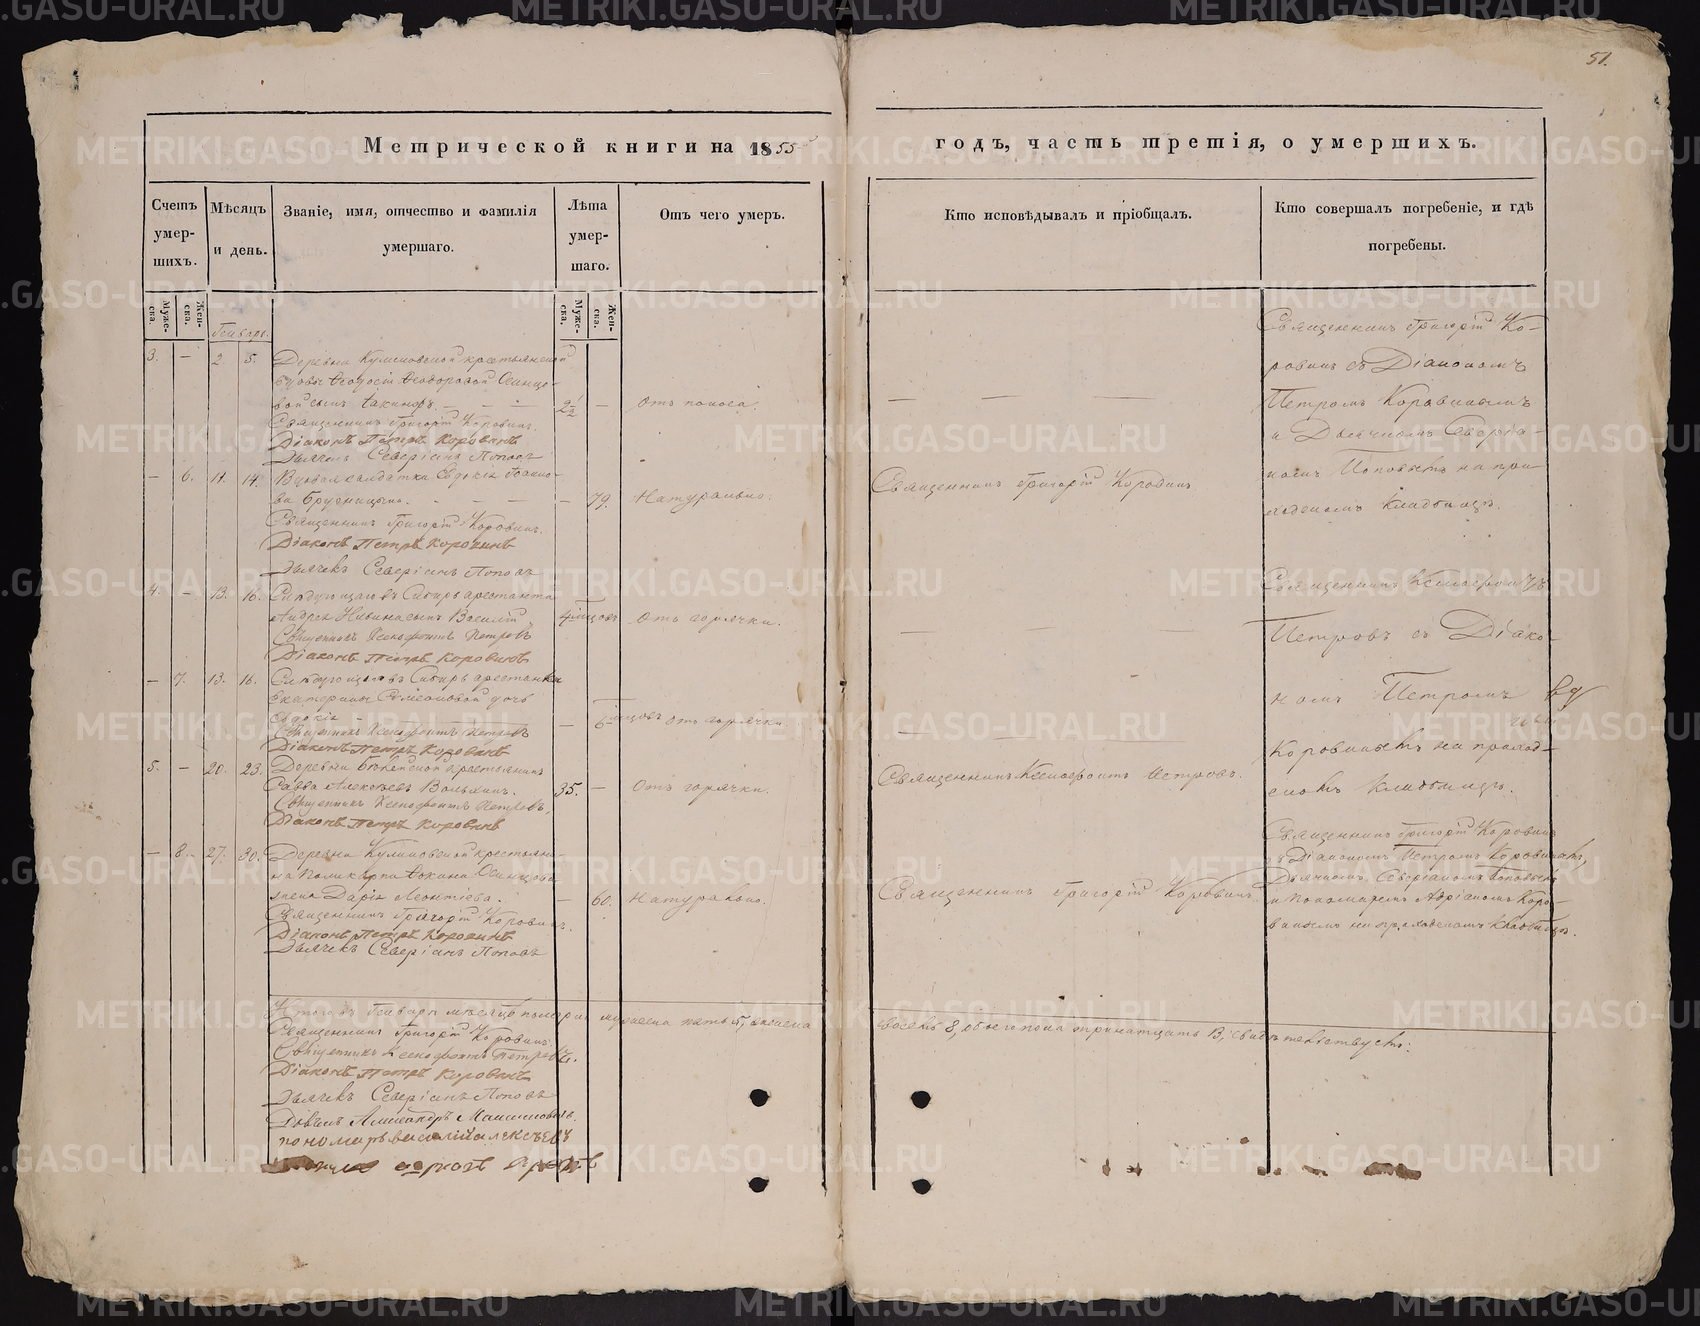 51.
Метрической книги на 1855
годъ, часть третія, о умершихъ.
Счетъ умер-шихъ.
Мѣсяцъ и день.
Званіе, имя, отчество и фамилія умершаго.
Лѣта умер-шаго.
Отъ чего умеръ.
Кто исповѣдывалъ и пріобщалъ.
Кто совершалъ погребеніе, и гдѣ погребены.
Муже-ска.
Жен-ска.
Муже-ска.
Жен-ска.
Генварь.
3. — 2. 5. Деревни Куликовской крестьянской
вдовы Ѳеодосіи Ѳеодоровой
сынъ Іакинфъ. 2½ — Отъ поноса.
Священникъ Григорій Коровинъ.
Діаконъ Петръ Коровинъ
Дьячекъ Северіанъ Поповъ
— 6. 11. 14. Вдовая солдатка Евдокія Іоанно-
ва Брусницына. — 79. Натурально.
Священникъ Григорій Коровинъ.
Діаконъ Петръ Коровинъ
Дьячекъ Северіанъ Поповъ
4. — 13. 16. Слѣдующаго въ Сибирь арестанта
Андрея сынъ Василій 4 Отъ горячки.
Священникъ Ксенофонтъ Петровъ
Діаконъ Петръ Коровинъ
— 7. 13. 16. Слѣдующей въ Сибирь арестантки
Екатерины Симеоновой дочь
Евдокія — 6 Отъ горячки.
Священникъ Ксенофонтъ Петровъ
Діаконъ Петръ Коровинъ
5. — 20. 23. Деревни крестьянинъ
Савва Алексѣевъ 35. — Отъ горячки.
Священникъ Ксенофонтъ Петровъ.
Діаконъ Петръ Коровинъ
— 8. 27. 30. Деревни Куликовской крестьяни-
на Поликарпа
жена Дарія Леонтіева. — 60. Натурально.
Священникъ Григорій Коровинъ.
Діаконъ Петръ Коровинъ
Дьячекъ Северіанъ Поповъ
Итого въ Генварѣ мѣсяцѣ померло мужеска пять 5, женска
Священникъ Григорій Коровинъ
Священникъ Ксенофонтъ Петровъ.
Діаконъ Петръ Коровинъ
Дьячекъ Северіанъ Поповъ
Александръ
пономарь василій алексѣевъ
Священникъ Григорій Коровинъ
Священникъ Ксенофонтъ Петровъ.
Священникъ Григорій Коровинъ.
восемь 8, обоего пола тринатцать 13, свидѣтельствуемъ:
Священникъ Григорій Ко-
ровинъ съ Діакономъ
Петромъ Коровинымъ
и Дьячкомъ Северіа-
номъ Поповымъ на при-
ходскомъ кладбищѣ.
Священникъ Ксенофонтъ
Петровъ съ Діако-
номъ Петромъ
Коровинымъ на приход-
скомъ кладбищѣ.
Священникъ Григорій Коровинъ
съ Діакономъ Петромъ Коровинымъ,
Дьячкомъ Северіаномъ Поповымъ
и Пономаремъ Адріаномъ Коро-
винымъ на приходскомъ кладбищѣ.
METRIKI.GASO-URAL.RU